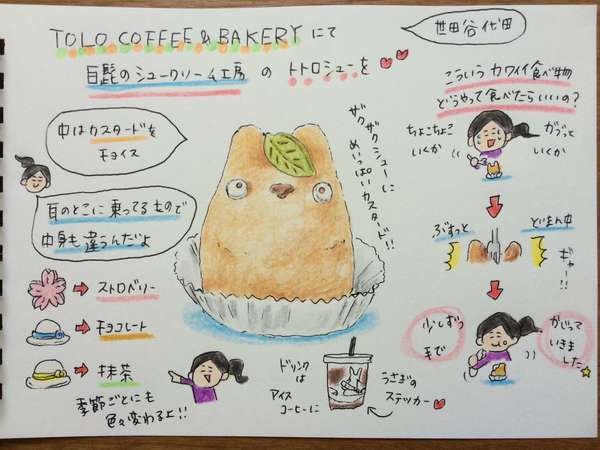 TOLO COFFEE & BAKERY にて
世田谷代田
白髭のシュークリーム工房 の トトロシューを
こういうカワイイ食べ物
どうやって食べたらいいの?
中はカスタードを
チョイス
耳のとこに乗ってるもので
中身も違うんだよ
ストロベリー
チョコレート
抹茶
季節ごとにも
色々変わるよ!!
ザクザクシューに
めいっぱいカスタード!!
ドリンク
は
アイス
コーヒーに
うさぎの
ステッカー
ちょこちょこ
いくか
がぶっと
いくか
ぶすっと
どまん中
ギャー!!
少しずつ
まで
かじって
いきました